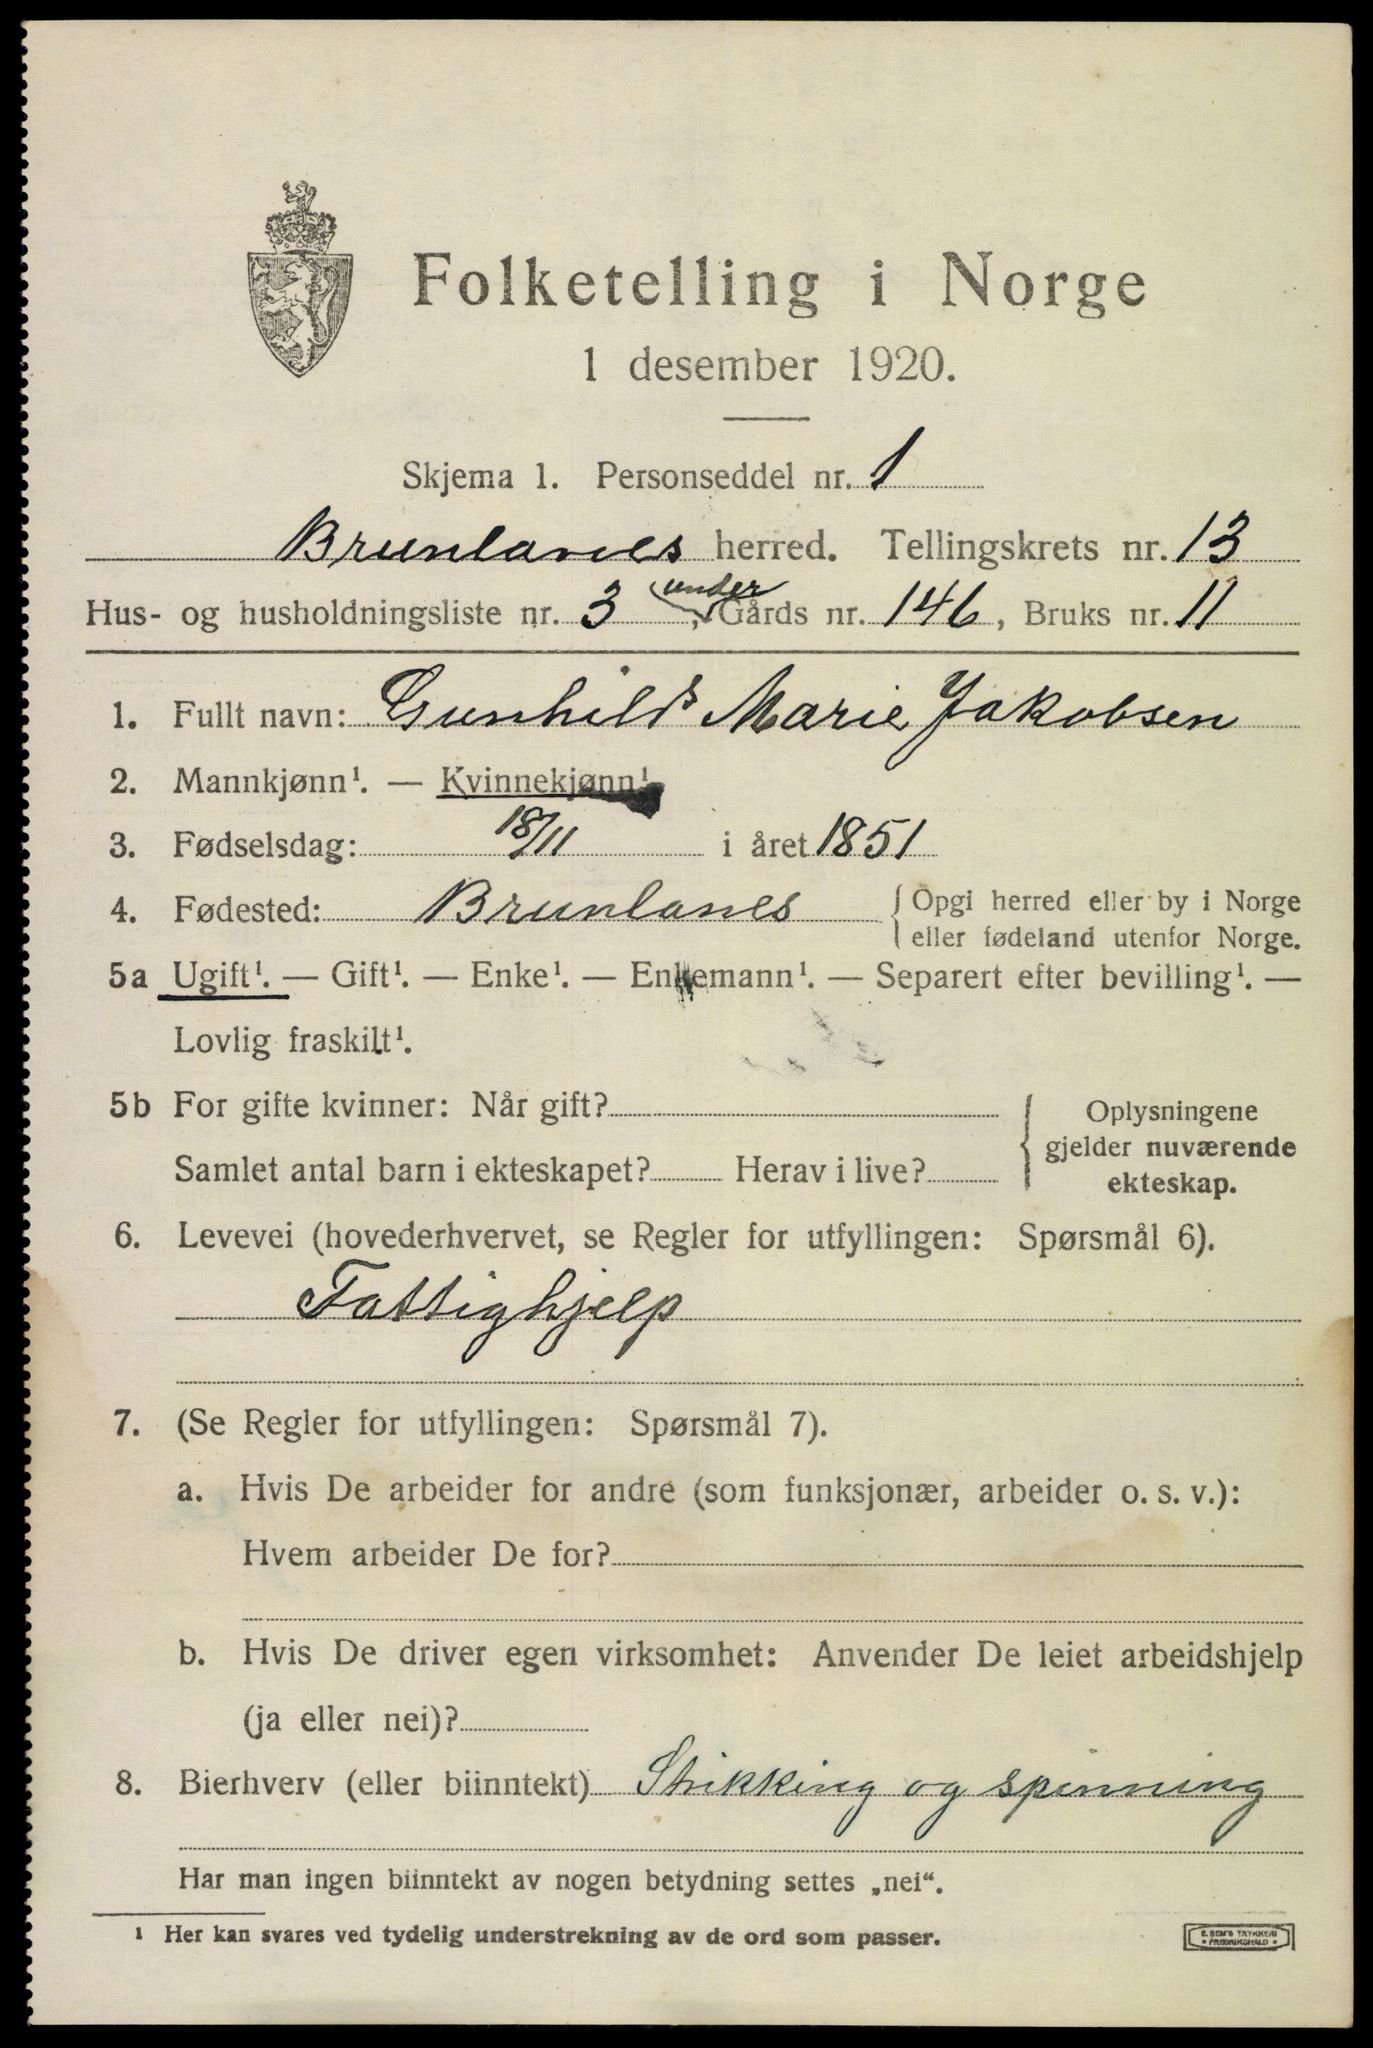 Folketelling i Norge
1 desember 1920.
Skjema 1. Personseddel nr. 1
Brunlanes herred. Tellingskrets nr. 13
under
Hus- og husholdningsliste nr. 3, Gårds nr. 146, Bruks nr. 11
1. Fullt navn: Gunhild Marie Jakobsen
2. Mannkjønn¹. — Kvinnekjønn¹.
3. Fødselsdag: 18/11 i året 1851
4. Fødested: Brunlanes { Opgi herred eller by i Norge
eller fødeland utenfor Norge.
5a Ugift¹. — Gift¹. — Enke¹. — Enkemann¹. — Separert efter bevilling¹. —
Lovlig fraskilt¹.
5b For gifte kvinner: Når gift?
Samlet antal barn i ekteskapet? Herav i live?
{ Oplysningene
gjelder nuværende
ekteskap.
6. Levevei (hovederhvervet, se Regler for utfyllingen: Spørsmål 6).
Fattighjelp
7. (Se Regler for utfyllingen: Spørsmål 7).
a. Hvis De arbeider for andre (som funksjonær, arbeider o. s. v.):
Hvem arbeider De for?
b. Hvis De driver egen virksomhet: Anvender De leiet arbeidshjelp
(ja eller nei)?
8. Bierhverv (eller biinntekt) Strikking og spinning
Har man ingen biinntekt av nogen betydning settes „nei“.
¹ Her kan svares ved tydelig understrekning av de ord som passer.
E. SEM'S TRYKKERI
• FREDRIKSHALD •